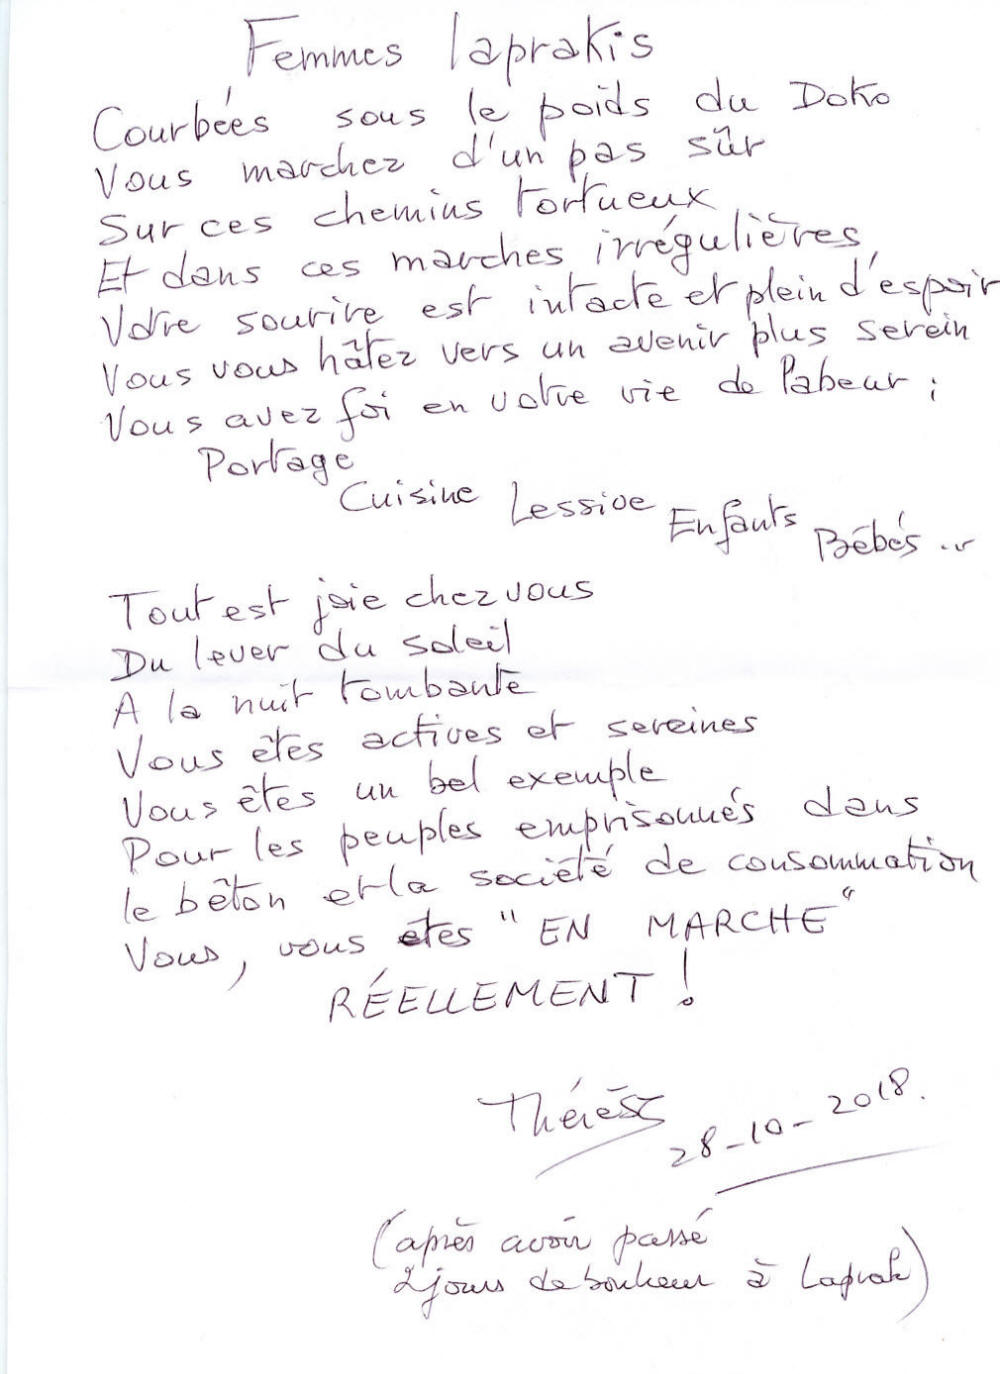 Femmes laprakis
Courbées sous le poids du Doko
Vous marchez d'un pas sûr
Sur ces chemins tortueux
Et dans ces marches irrégulières,
Votre sourire est intacte et plein d'espoir
Vous vous hâtez vers un avenir plus serein
Vous avez foi en votre vie de labeur ;
Portage
Cuisine Lessive Enfants Bébés ...
Tout est joie chez vous
Du lever du soleil
A la nuit tombante
Vous êtes actives et sereines
Vous êtes un bel exemple
Pour les peuples emprisonnés dans
le bêton et la société de consommation
Vous, vous etes "EN MARCHE"
RÉELLEMENT !
Thérèse
28-10-2018.
(après avoir passé
2 jours de bonheur à Laprak)